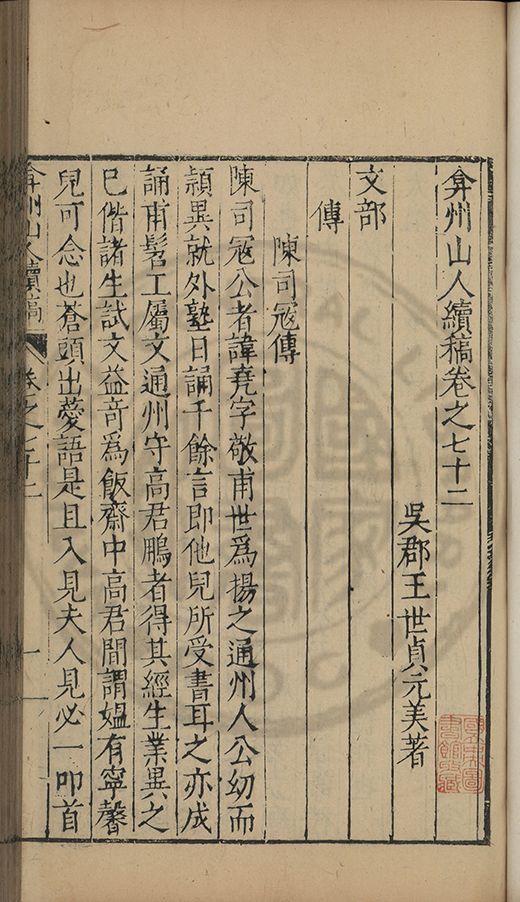 弇州山人續稿卷之七十二
吳郡王世貞元美著
文部
傳
陳司寇傳
陳司寇公者諱堯字敬甫世爲揚之通州人公幼而
頴異就外塾日誦千餘言即他兒所受書耳之亦成
誦甫髫工屬文通州守高君鵬者得其經生業異之
巳偕諸生試文益竒爲飯齋中高君間謂媼有寧馨
兒可念也蒼頭出薆語是且入見夫人見必一叩首
弇州山人續稿
卷之七十二
一